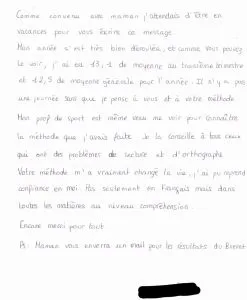 Comme convenu avec maman j'attendais d'être en
vacances pour vous écrire ce message.
Mon année s'est très bien déroulée, et comme vous pouvez
le voir, j'ai eu 13,1 de moyenne au troisième trimestre
et 12,5 de moyenne générale pour l'année. Il n'y a pas
une journée sans que je pense à vous et à votre méthode.
Mon prof de sport est même venu me voir pour connaître
la méthode que j'avais faite. Je la conseille à tous ceux
qui ont des problèmes de lecture et d'orthographe
Votre méthode m'a vraiment changé la vie, j'ai pu reprend
confiance en moi. Pas seulement en Français mais dans
toutes les matières au niveau compréhension...
Encore merci pour tout.
Ps: Maman vous enverra un mail pour les résultats du Brevet